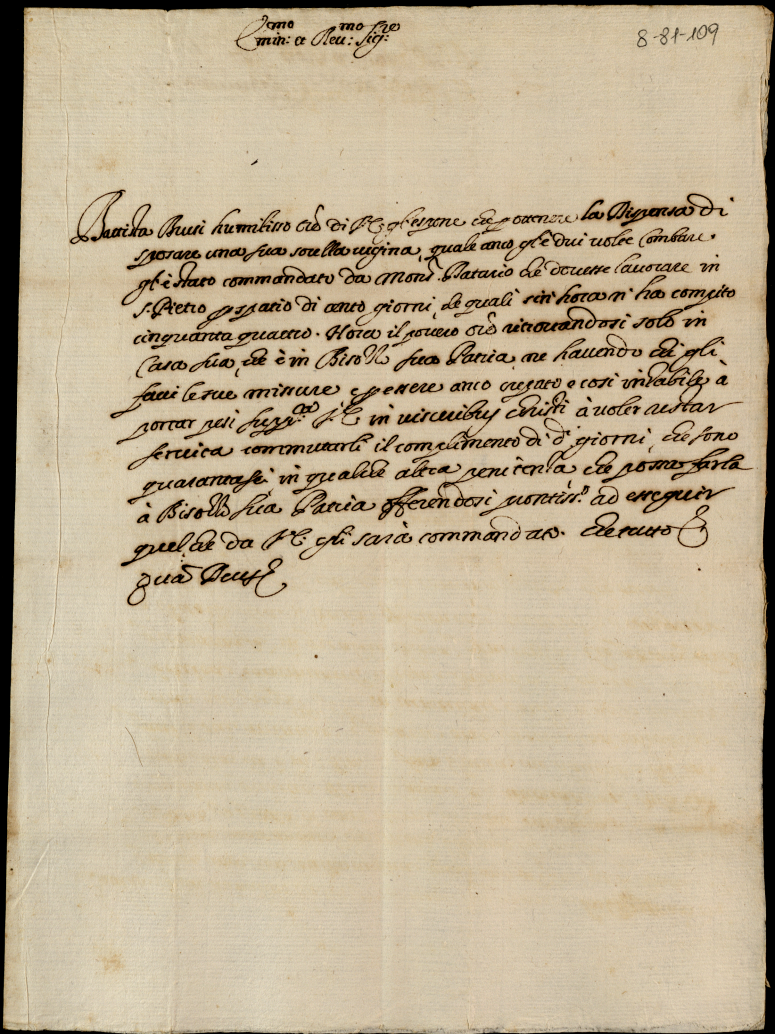 Emin:mo et Rev:mo Sig:re
8-81-109
Battista Busi humilisso orē di V.E. gl'espone che p ottenere la Dispensa di
sposare una sua sorella cugina, quale anco gl'è dui volte Combare.
gl'è stato commandato da Mons.r Datario che dovesse lavorare in
S. Pietro p spatio di cento giorni, de quali sin hora n'ha compito
cinquanta quattro. Hora il povero orē ritrovandosi solo in
Casa sua, che è in Patria ne havendo chi gli
facci le sue misture, e p essere anco crepato e cosi inhabile à
portar pesi supp.ca V.E. in visceribus Christi à voler restar
servita commutarli il complimento di d.i giorni, che sono
quarantasei in qualche altra penitenza che possa farla
à sua Patria offerendosi pontiss.o ad esseguir
quel che da V.E. gli sarà commandato. Che tutto &
Quā Deus &